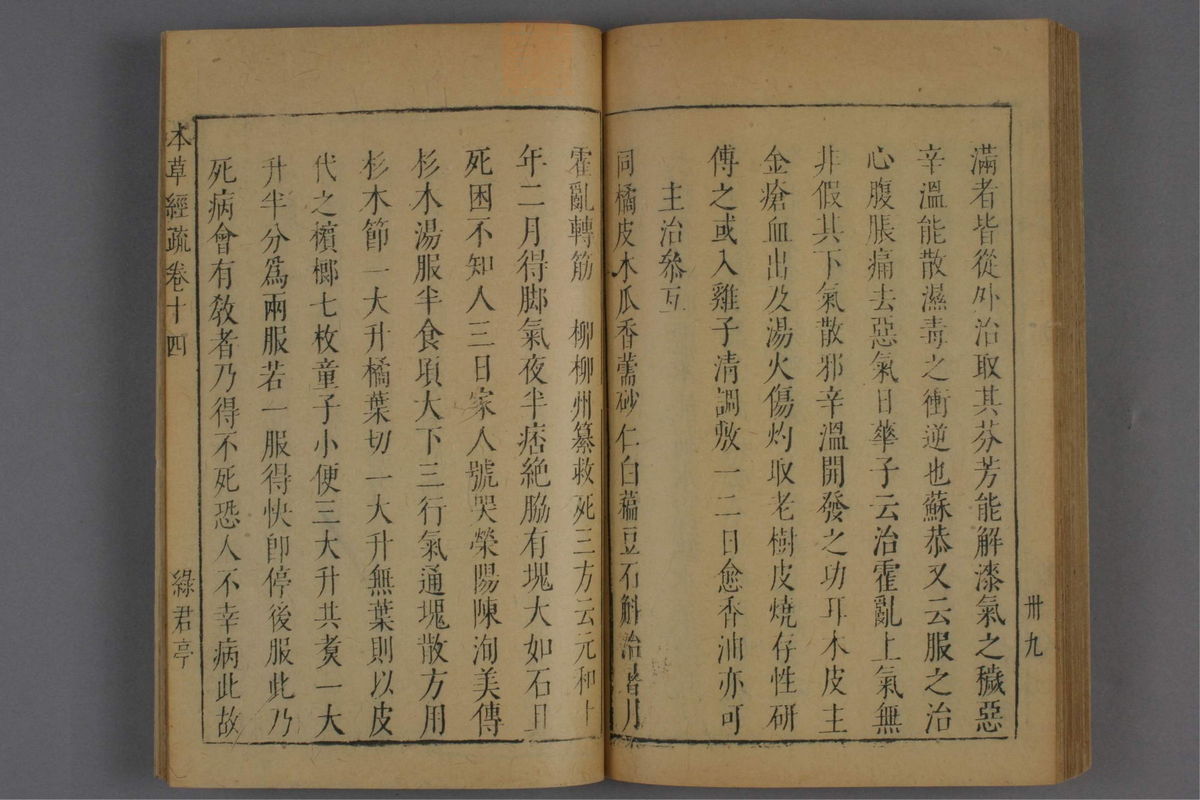 卅九
滿者皆從外治取其芬芳能解漆氣之穢惡
辛溫能散濕毒之衝逆也蘇恭又云服之治
心腹脹痛去惡氣日華子云治霍亂上氣無
非假其下氣散邪辛溫開發之功耳木皮主
金瘡血出及湯火傷灼取老樹皮燒存性研
傅之或入雞子清調敷一二日愈香油亦可
主治叅互
同橘皮木瓜香薷砂仁白藊豆石斛治暑月
霍亂轉筋 柳柳州纂救死三方云元和十
年二月得脚氣夜半痞絶脇有塊大如石且
死困不知人三日家人號哭榮陽陳洵美傳
杉木湯服半食頃大下三行氣通塊散方用
杉木節一大升橘葉切一大升無葉則以皮
代之檳榔七枚童子小便三大升共煑一大
升半分爲兩服若一服得快卽停後服此乃
死病會有敎者乃得不死恐人不幸病此故
本草經疏卷十四
綠君亭